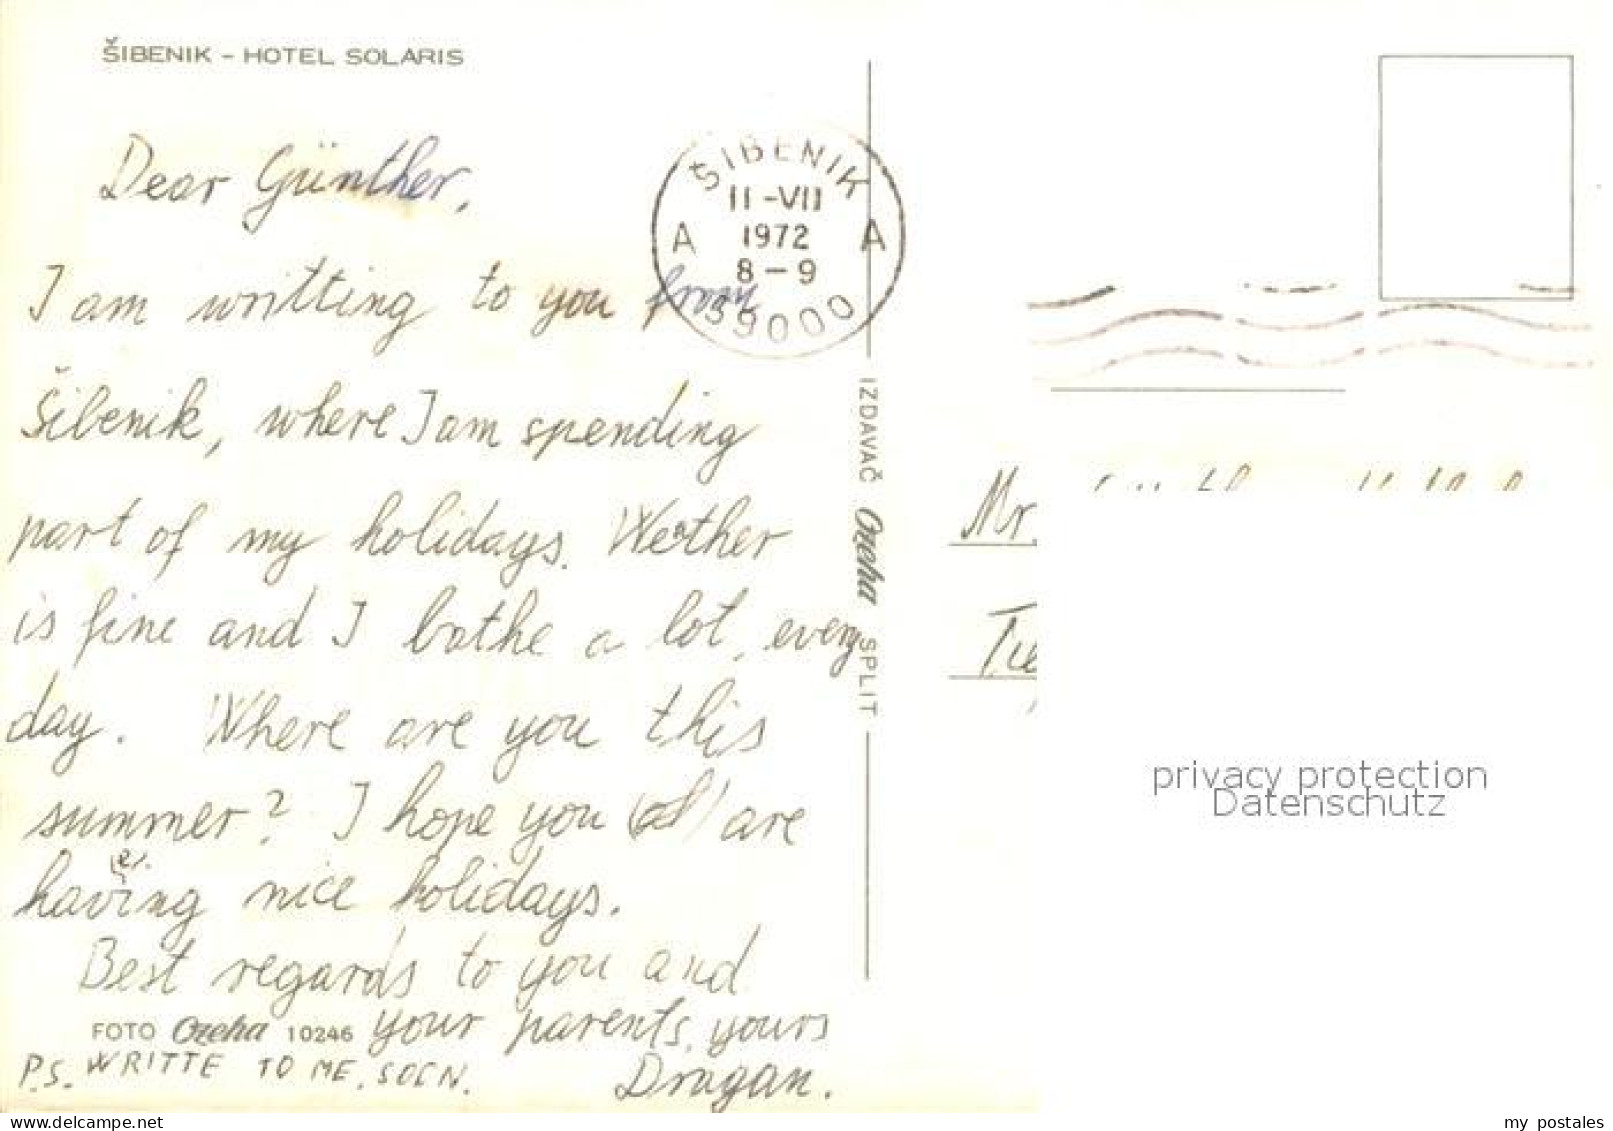 ŠIBENIK – HOTEL SOLARIS
Dear Günther,
I am writting to you from
Šibenik, where I am spending
part of my holidays. Weather
is fine and I bathe a lot, every
day. Where are you this
summer? I hope you are
having nice holidays.
Best regards to you and
your parents, yours
Dragan.
P.S. WRITTE TO ME, SOON.
FOTO Ozeha 10246
ŠIBENIK
11-VII
1972
8-9
A A
59000
IZDAVAČ Ozeha SPLIT
Mr.
privacy protection
Datenschutz
www.delcampe.net
my_postales